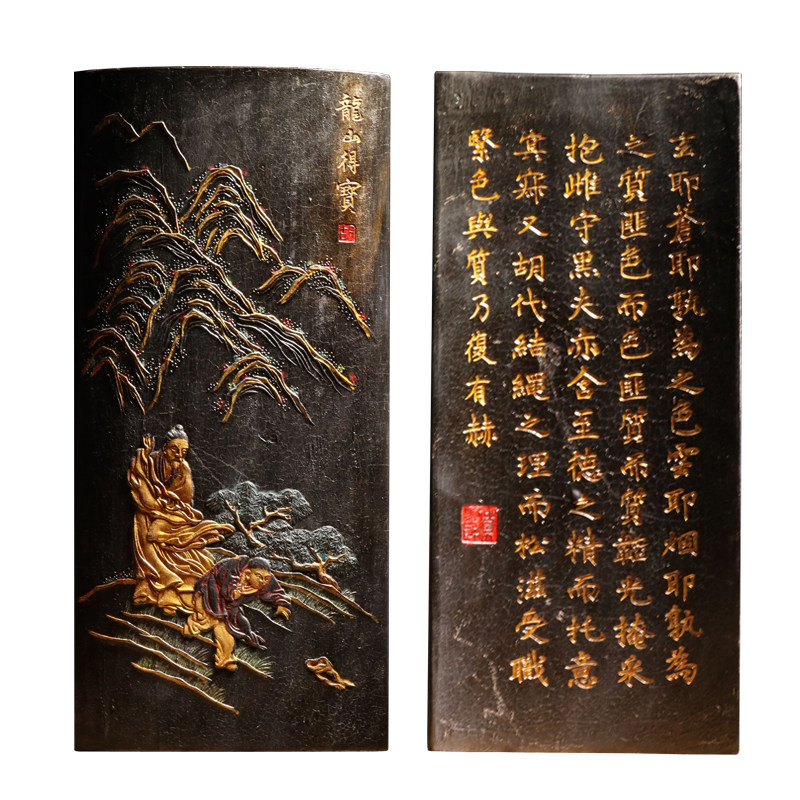 龍山得寶
玄耶蒼耶孰為之色雲耶烟耶孰為
之質匪色而色匪質而質韜光掩采
抱雌守黑夫亦含至德之精而托意
㝠寂又胡代結繩之理而松滋受職
繄色與質乃復有赫